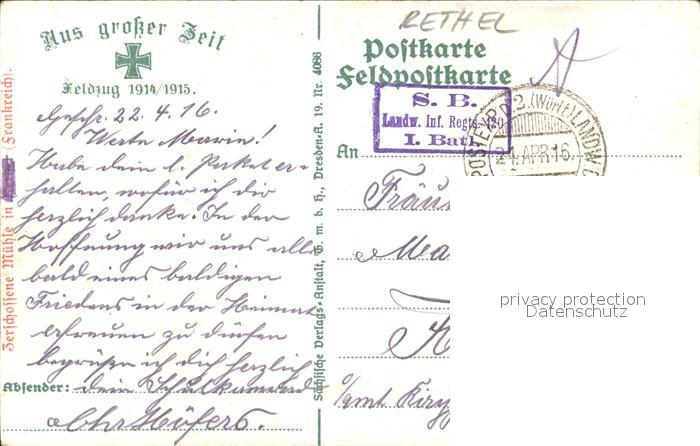 RETHEL
Aus großer Zeit
Feldzug 1914/1915.
Geschr. 22. 4. 16.
Werte Marin!
Habe dein l. Paket er-
halten, wofür ich dir
herzlich danke. In der
Hoffnung wir uns alle
bald eines baldigen
Friedens in der Heimat
erfreuen zu dürfen
begrüße ich dich herzlich
Absender: dein Schulkamerad
Chr Höfers.
Zerschossene Mühle in (Frankreich).
Sächsische Verlags-Anstalt, G. m. b. H., Dresden-A. 19. Nr. 4086
Postkarte
Feldpostkarte
S. B.
Landw. Inf. Regts. 120
I. Batl.
2. (Württ) LANDW.
24. APR 16.
An
Fräu
Ma
O/amt
privacy protection
Datenschutz